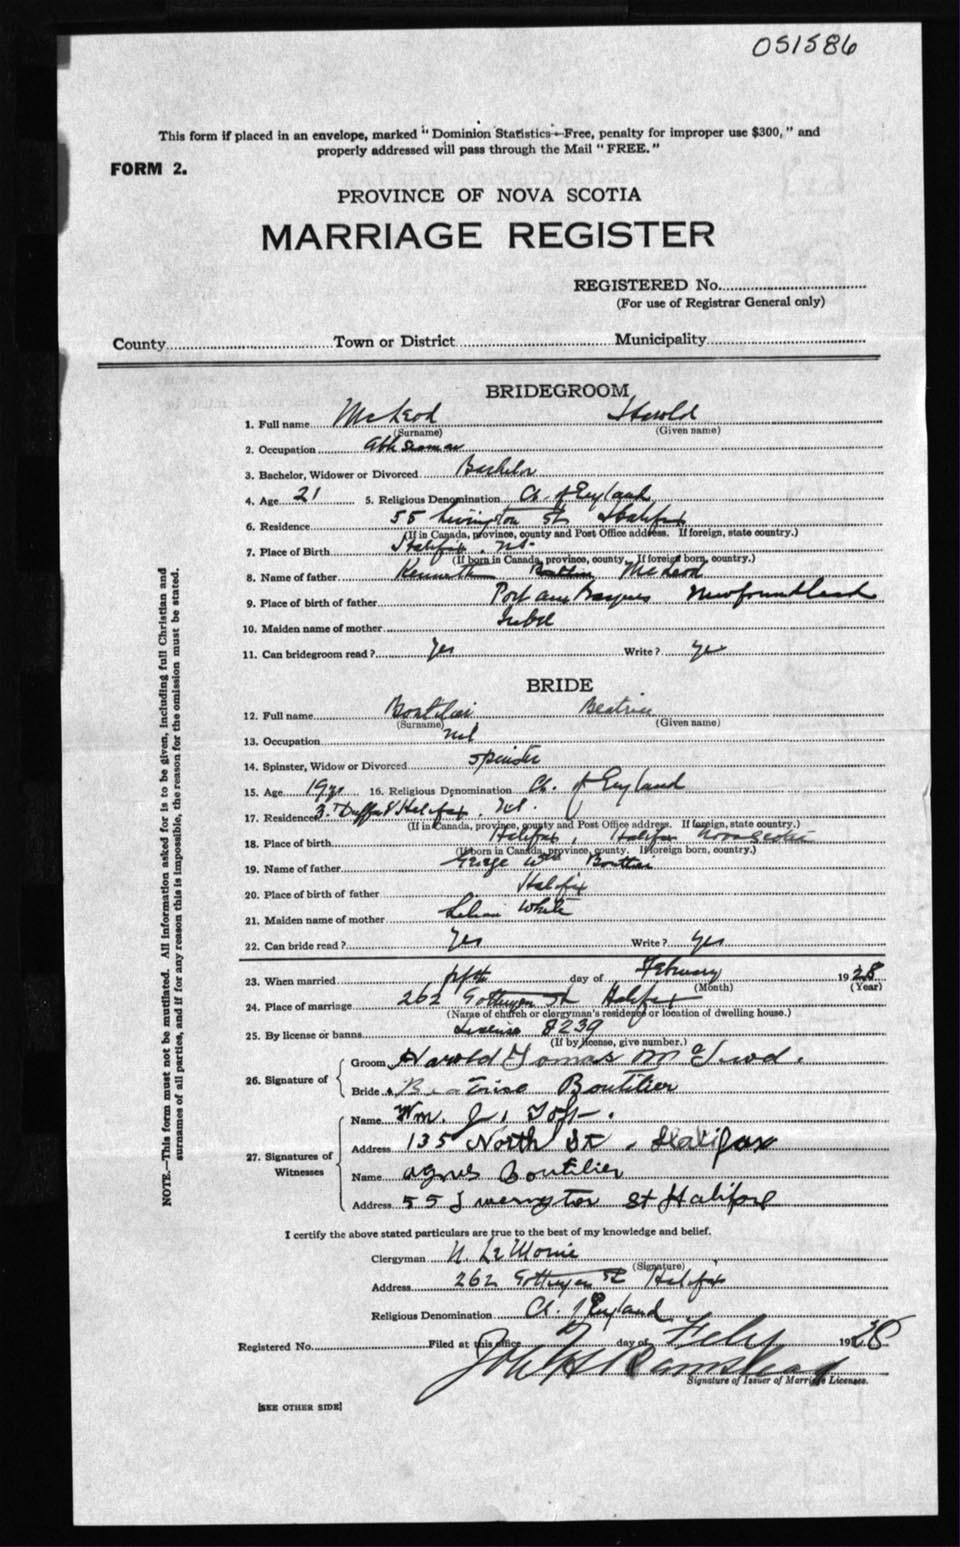 051586
This form if placed in an envelope, marked "Dominion Statistics—Free, penalty for improper use $300," and
properly addressed will pass through the Mail "FREE."
FORM 2.
PROVINCE OF NOVA SCOTIA
MARRIAGE REGISTER
REGISTERED No.
(For use of Registrar General only)
County Town or District Municipality
BRIDEGROOM
1. Full name McLeod Harold
(Surname) (Given name)
2. Occupation Able Seaman
3. Bachelor, Widower or Divorced Bachelor
4. Age 21 5. Religious Denomination Ch. of England
6. Residence 55 Livingston St Halifax
(If in Canada, province, county and Post Office address. If foreign, state country.)
7. Place of Birth Halifax, N.S.
(If born in Canada, province, county. If foreign born, country.)
8. Name of father Kenneth McLeod
9. Place of birth of father Port aux Basques Newfoundland
10. Maiden name of mother
11. Can bridegroom read? Yes Write? Yes
BRIDE
12. Full name Boutilier Beatrice
(Surname) (Given name)
13. Occupation nil
14. Spinster, Widow or Divorced Spinster
15. Age 19 16. Religious Denomination Ch. of England
17. Residence 3. Duffus St Halifax, N.S.
(If in Canada, province, county and Post Office address. If foreign, state country.)
18. Place of birth Halifax, Halifax Nova Scotia
(If born in Canada, province, county. If foreign born, country.)
19. Name of father George Wm Boutilier
20. Place of birth of father Halifax
21. Maiden name of mother White
22. Can bride read? Yes Write? Yes
23. When married fifth day of February 1928
(Month) (Year)
24. Place of marriage 262 Gottingen St Halifax
(Name of church or clergyman's residence or location of dwelling house.)
25. By license or banns License 8239
(If by license, give number.)
26. Signature of
Groom Harold Tomas McLeod.
Bride Beatrice Boutilier
27. Signatures of Witnesses
Name Wm. J. .
Address 135 North St. Halifax
Name Agnes Boutilier
Address 55 St Halifax
I certify the above stated particulars are true to the best of my knowledge and belief.
Clergyman N. Le Moine
(Signature)
Address 262 Gottingen St Halifax
Religious Denomination Ch. of England
Registered No. Filed at this office day of Feby 1928
Signature of Issuer of Marriage Licenses.
[SEE OTHER SIDE]
NOTE.—This form must not be mutilated. All information asked for is to be given, including full Christian and
surnames of all parties, and if for any reason this is impossible, the reason for the omission must be stated.